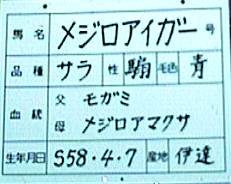 馬名 メジロアイガー 号
品種 サラ 性 騸 毛色 青
血統 父 モガミ
母 メジロアマクサ
生年月日 S58・4・7 産地 伊達